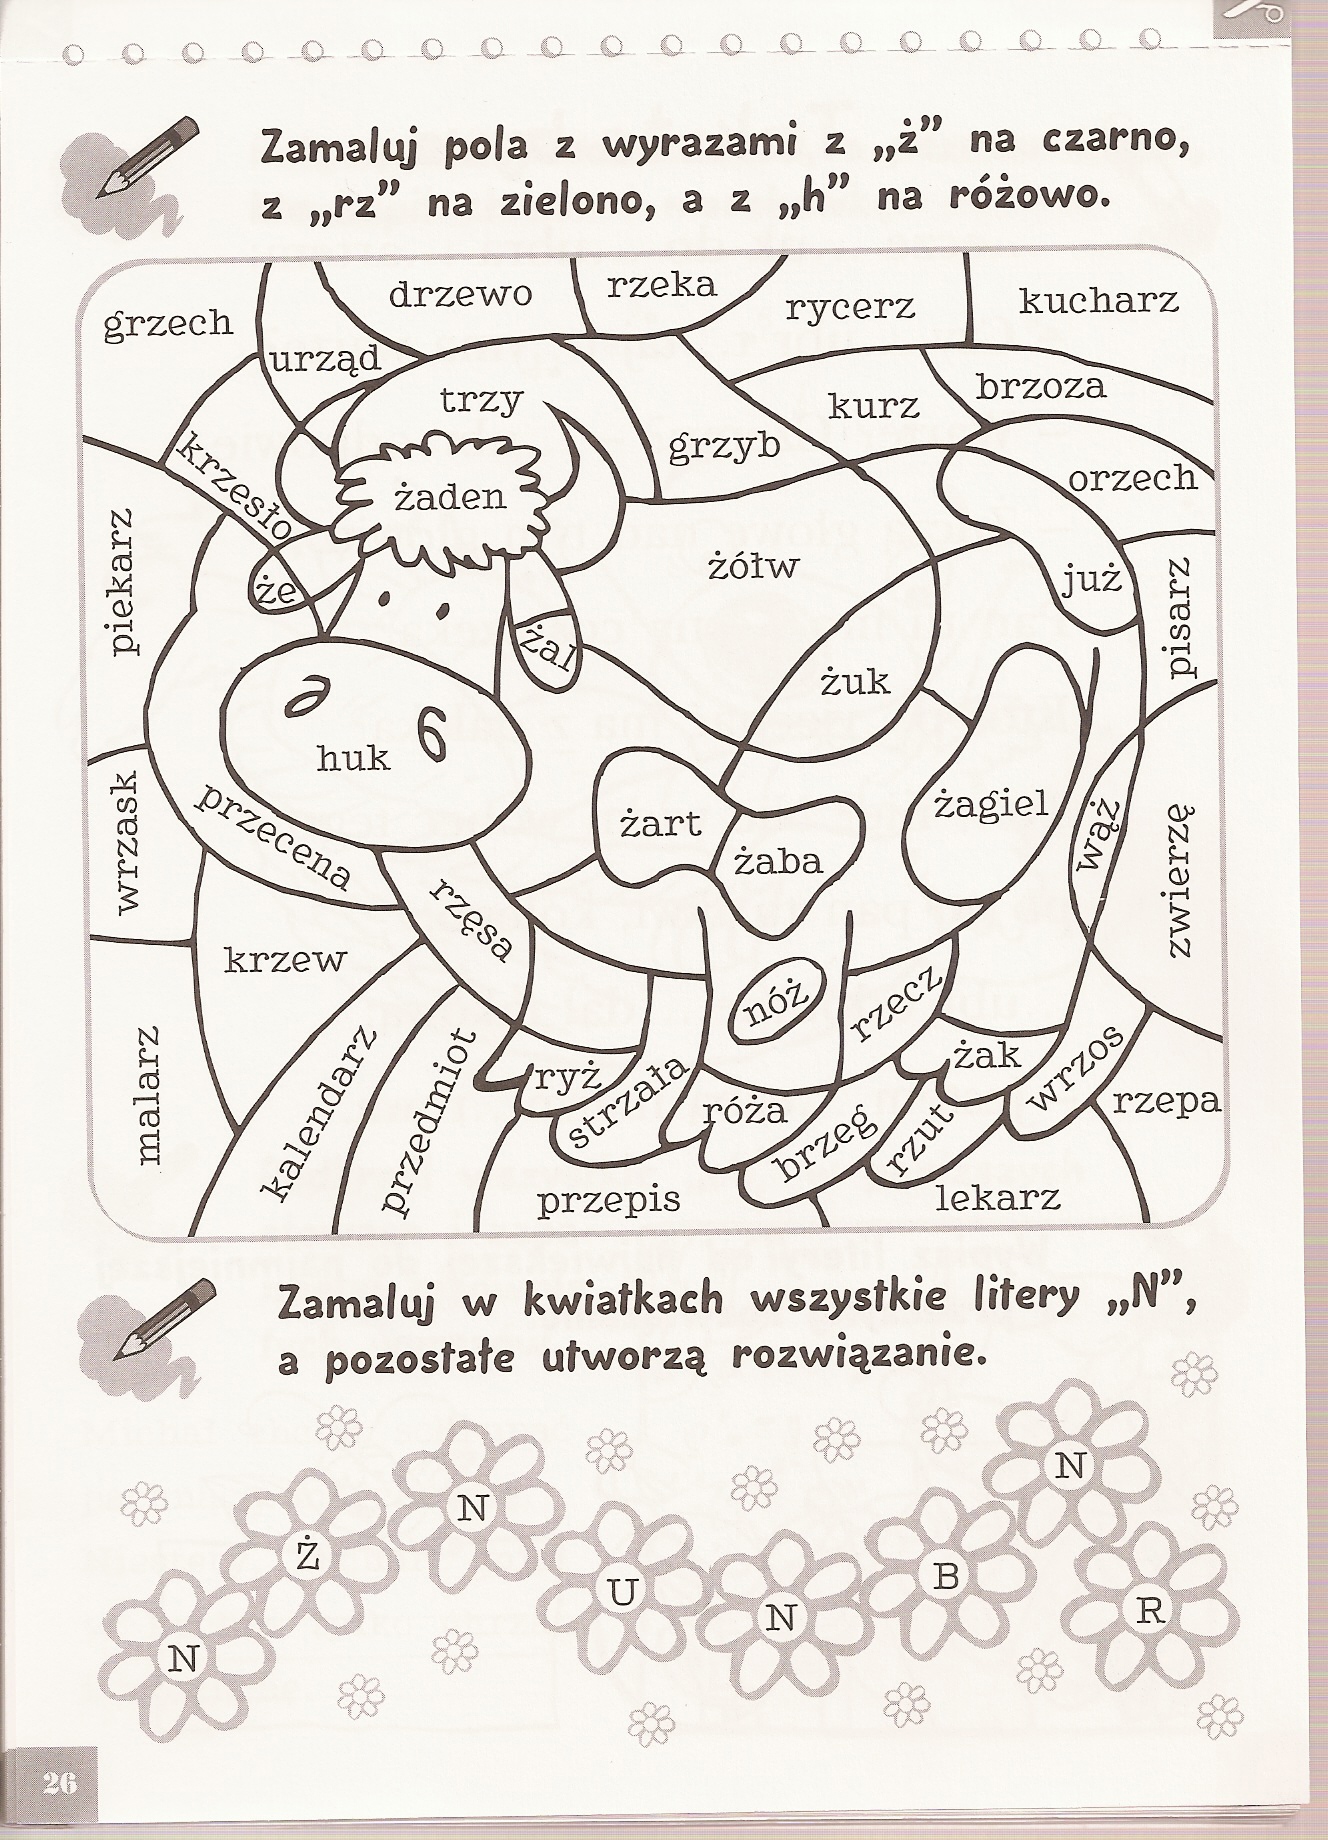 Zamaluj pola z wyrazami z „ż” na czarno,
z „rz” na zielono, a z „h” na różowo.
grzech
urząd
drzewo
rzeka
rycerz
kucharz
trzy
krzesło
żaden
grzyb
kurz
brzoza
orzech
piekarz
że
żal
żółw
już
pisarz
żuk
huk
żart
żaba
żagiel
wąż
zwierzę
wrzask
przecena
rzęsa
krzew
nóż
rzecz
malarz
kalendarz
przedmiot
ryż
strzała
róża
brzeg
rzut
żak
wrzos
rzepa
przepis
lekarz
Zamaluj w kwiatkach wszystkie litery „N”,
a pozostałe utworzą rozwiązanie.
N
Ż
N
U
N
B
N
R
26